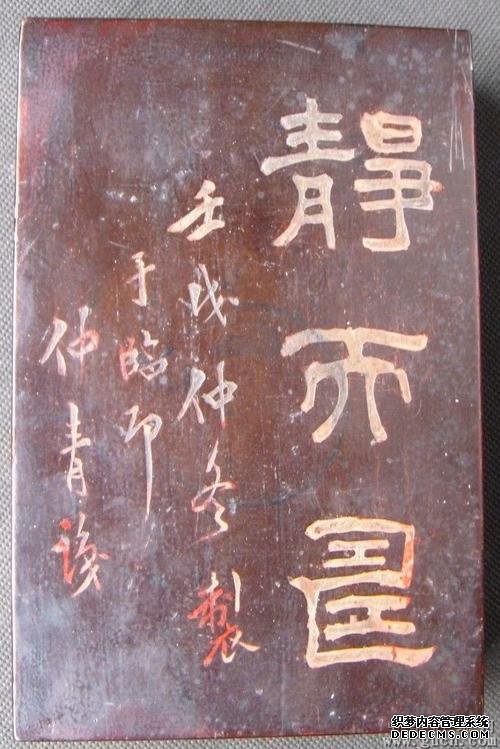 靜
壬戌仲冬製
于臨邛
仲青
织梦内容管理系统
DEDECMS.COM